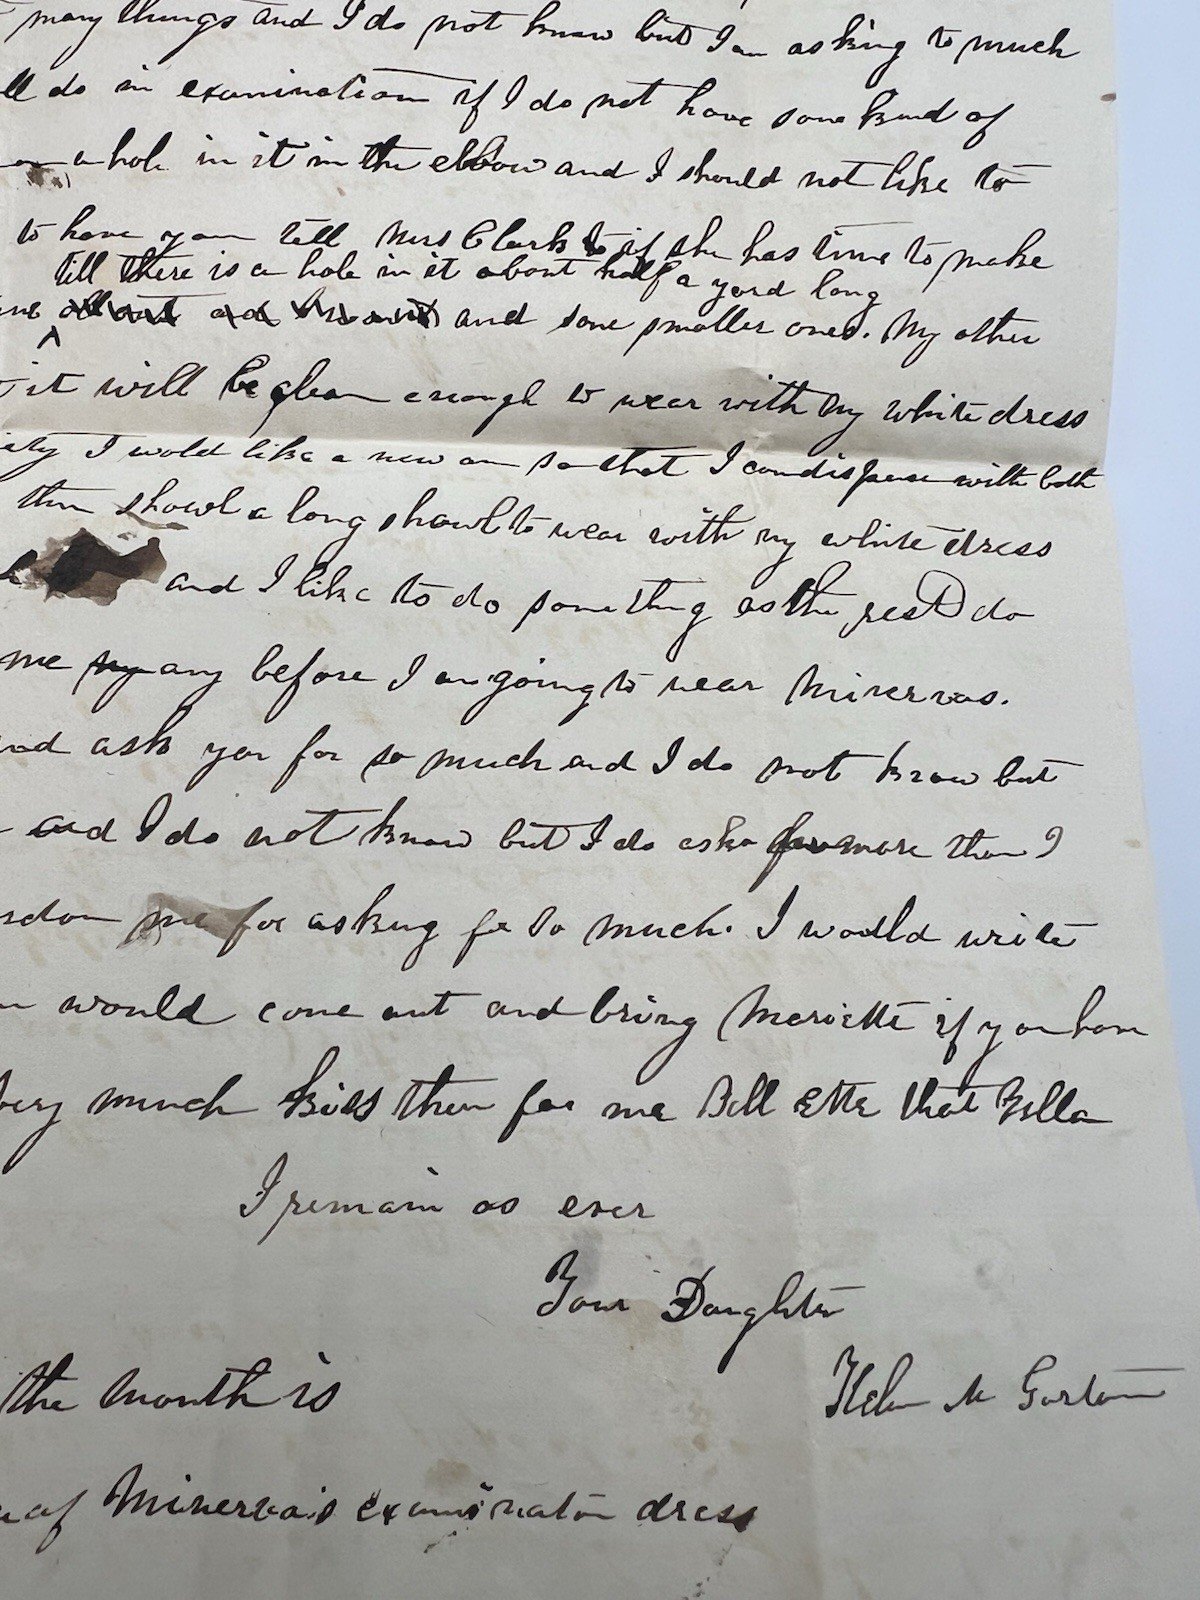 many things and I do not know but I am asking to much
ll do in examination if I do not have some kind of
a hole in it in the elbow and I should not like to
to have you tell Mrs Clark to if she has time to make
till there is a hole in it about half a yard long
and some smaller ones. My other
it will be clean enough to wear with my white dress
iety I wold like a new one so that I can dispense with both
then showl a long shawl to wear with my white dress
and I like to do something as the rest do
me my any before I am going to wear Minervas.
and ask you for so much and I do not know but
and I do not know but I do ask for more than I
rdon me for asking for to much. I would write
would come out and bring Mariette if you have
very much kiss them for me Tell Ette that Zella
I remain as ever
Your Daughter
Helen M Gorton
the month is
of Minerva's examination dress